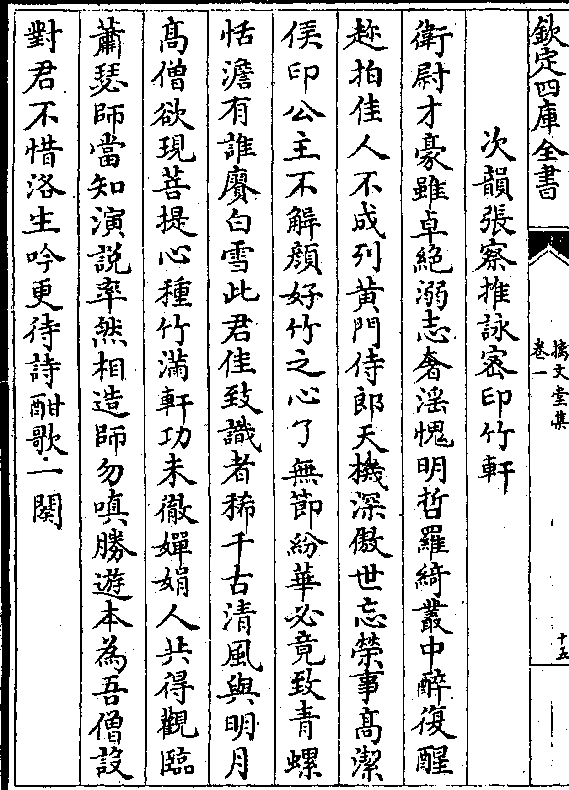 欽定四庫全書
摛文堂集
卷一
十五
次韻張察推詠密印竹軒
衛尉才豪雖卓絶溺志奢滛愧明哲羅綺叢中醉復醒
趂拍佳人不成列黄門侍郎天機深傲世忘榮事髙潔
侯印公主不解顔好竹之心了無節紛華必竟致青螺
恬澹有誰賡白雪此君佳致識者稀千古清風與明月
髙僧欲現菩提心種竹滿軒功未徹嬋娟人共得觀臨
蕭瑟師當知演説率然相造師勿嗔勝遊本為吾僧設
對君不惜洛生吟更待詩酣歌一闋